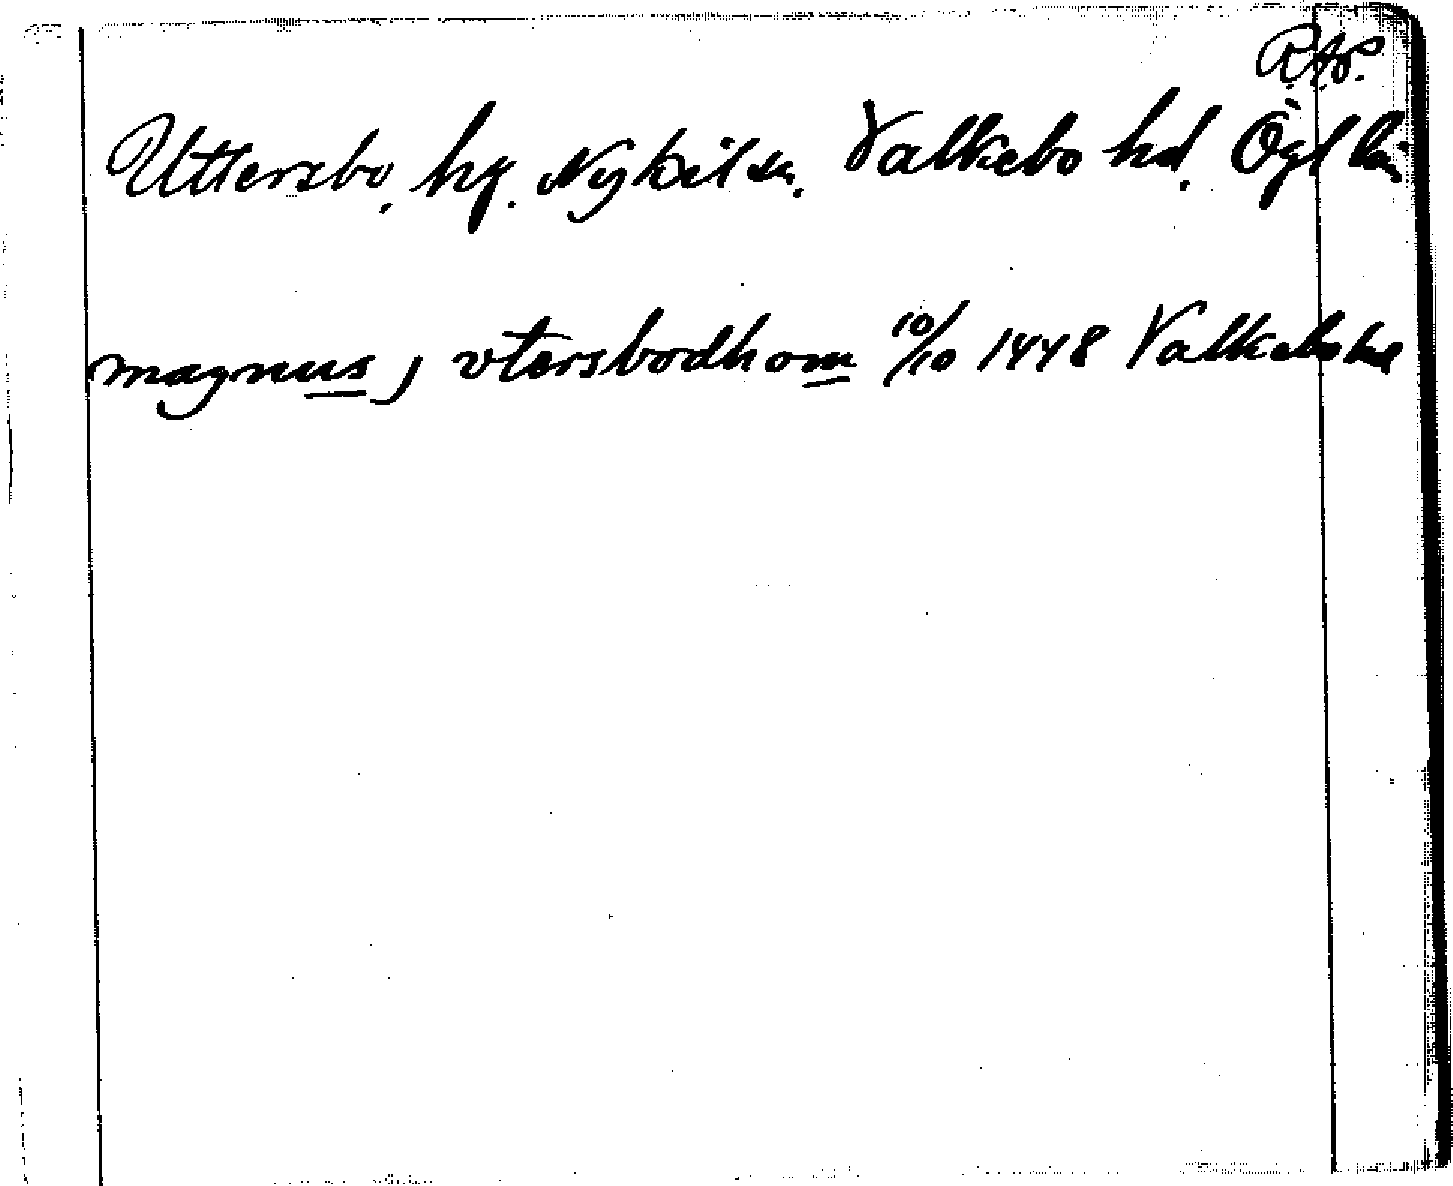 RAP.
Uttersbo, hg. Nykil sn. Valkebo hd. Ögl län
magnus j vtersbodhom 10/10 1448 Valkebo hd